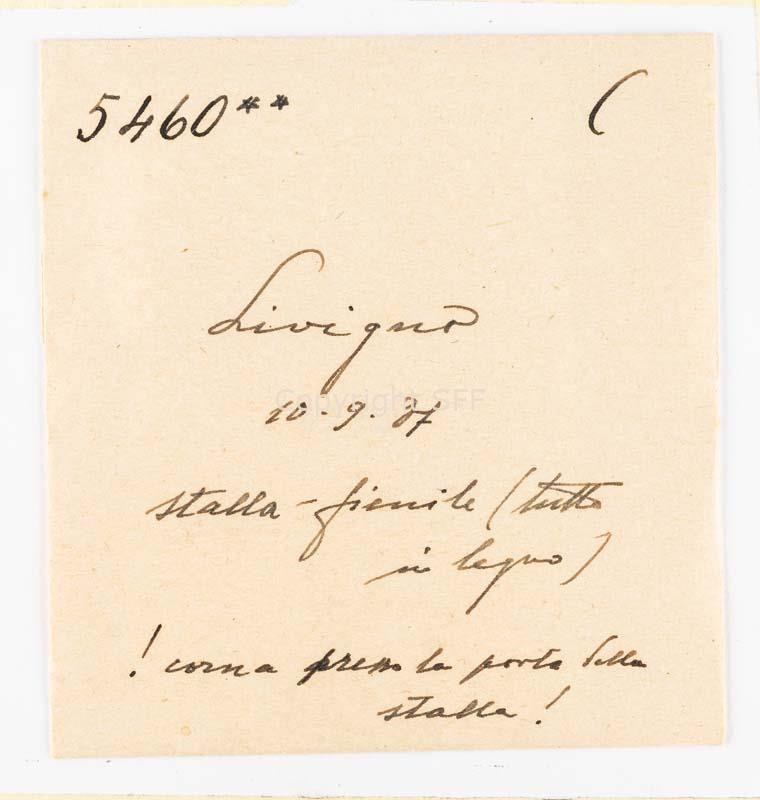 5460** (
Livigno
Copyright SFF
10.9.37
stalla-fienile (tutto
in legno)
! corna presso la porta della
stalla!